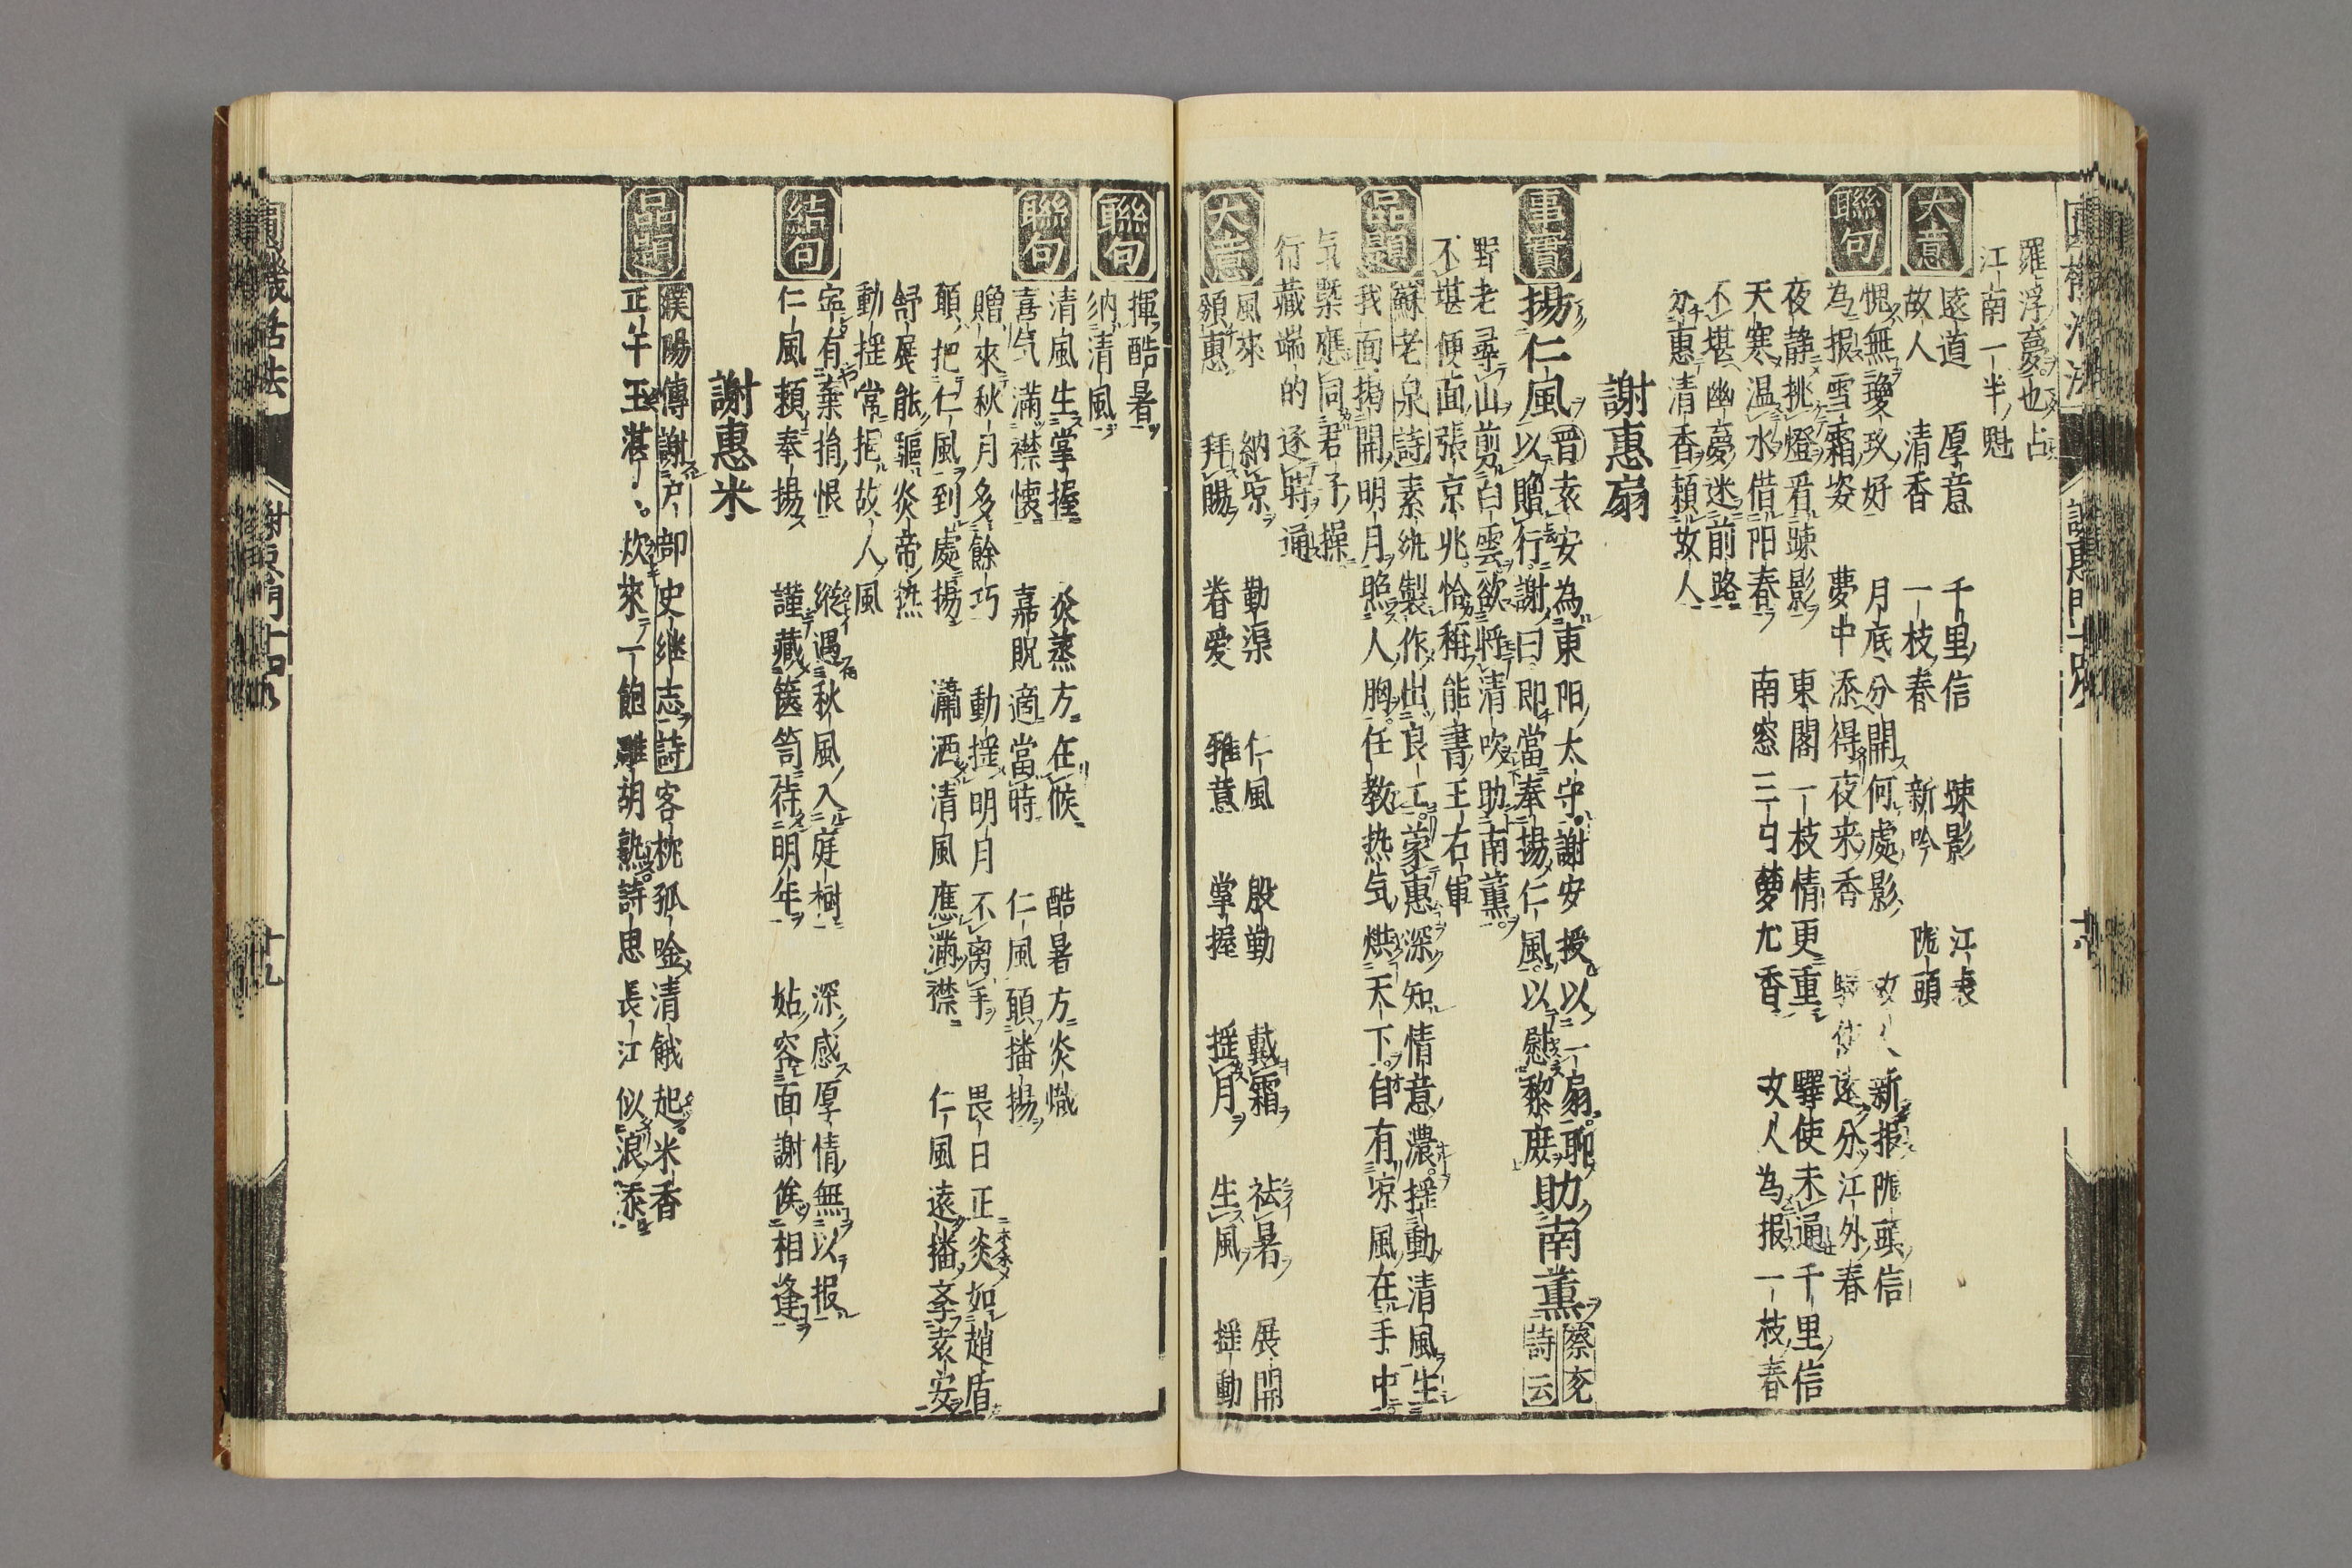 羅浮夢也占
江南一半魁
大意
遠道 厚意 千里信 踈影 江表
故人 清香 一枝春 新吟 隴頭
聯句
愧無瓊玖好 月底分開何處影 故人新报隴頭信
為报雪霜姿 夢中添得夜来香 驛使遠分江外春
夜静挑燈看踈影 東閣一枝情更重 驛使未通千里信
天寒温水借阳春 南窓三弓夢尤香 故人為报一枝春
不堪幽夢迷前路
分惠清香頼故人
謝惠扇
事實
揚仁風 晋袁安為東阳太守謝安授以一扇聊
以贈行謝曰即當奉揚仁風以慰黎庶
助南薫 蔡充
詩云
野老尋山剪白雲欲將清吹助南薫
不堪便面張京兆恰稱能書王右軍
品題
蘇老泉詩 素紈製作出良工蒙惠深知情意濃揺動清風生
我面掲開明月照人胸任教热气烘天下自有凉風在手中
气槩應同君子操
行藏端的逐時通
大意
風來 納凉 勤渠 仁風 殷勤 戴霜 祛暑 展開
頒惠 拜賜 眷爱 雅意 掌握 揺月 生風 揺動
揮酷暑
聯句
納清風
聯句
清風生掌握 炎蒸方在候 酷暑方炎熾
喜气滿襟懐 嘉貺適當時 仁風頭播揚
贈來秋月多餘巧 動揺明月不离手 畏日正炎如趙盾
顛把仁風到處揚 瀟洒清風應滿襟 仁風遠播季袁安
舒展能驅炎帝热
動揺常挹故人風
結句
寕有棄捐恨 縱遇秋風入庭樹 深感厚情無以报
仁風頼奉揚 謹藏篋笥待明年 姑容面謝俟相逢
謝惠米
品題
濮陽傳謝户部史继志詩 客枕孤唫清餓起米香
正午玉湛〻炊來一飽雕胡熟詩思長江似浪添
圓機活法 謝惠門十四 十九